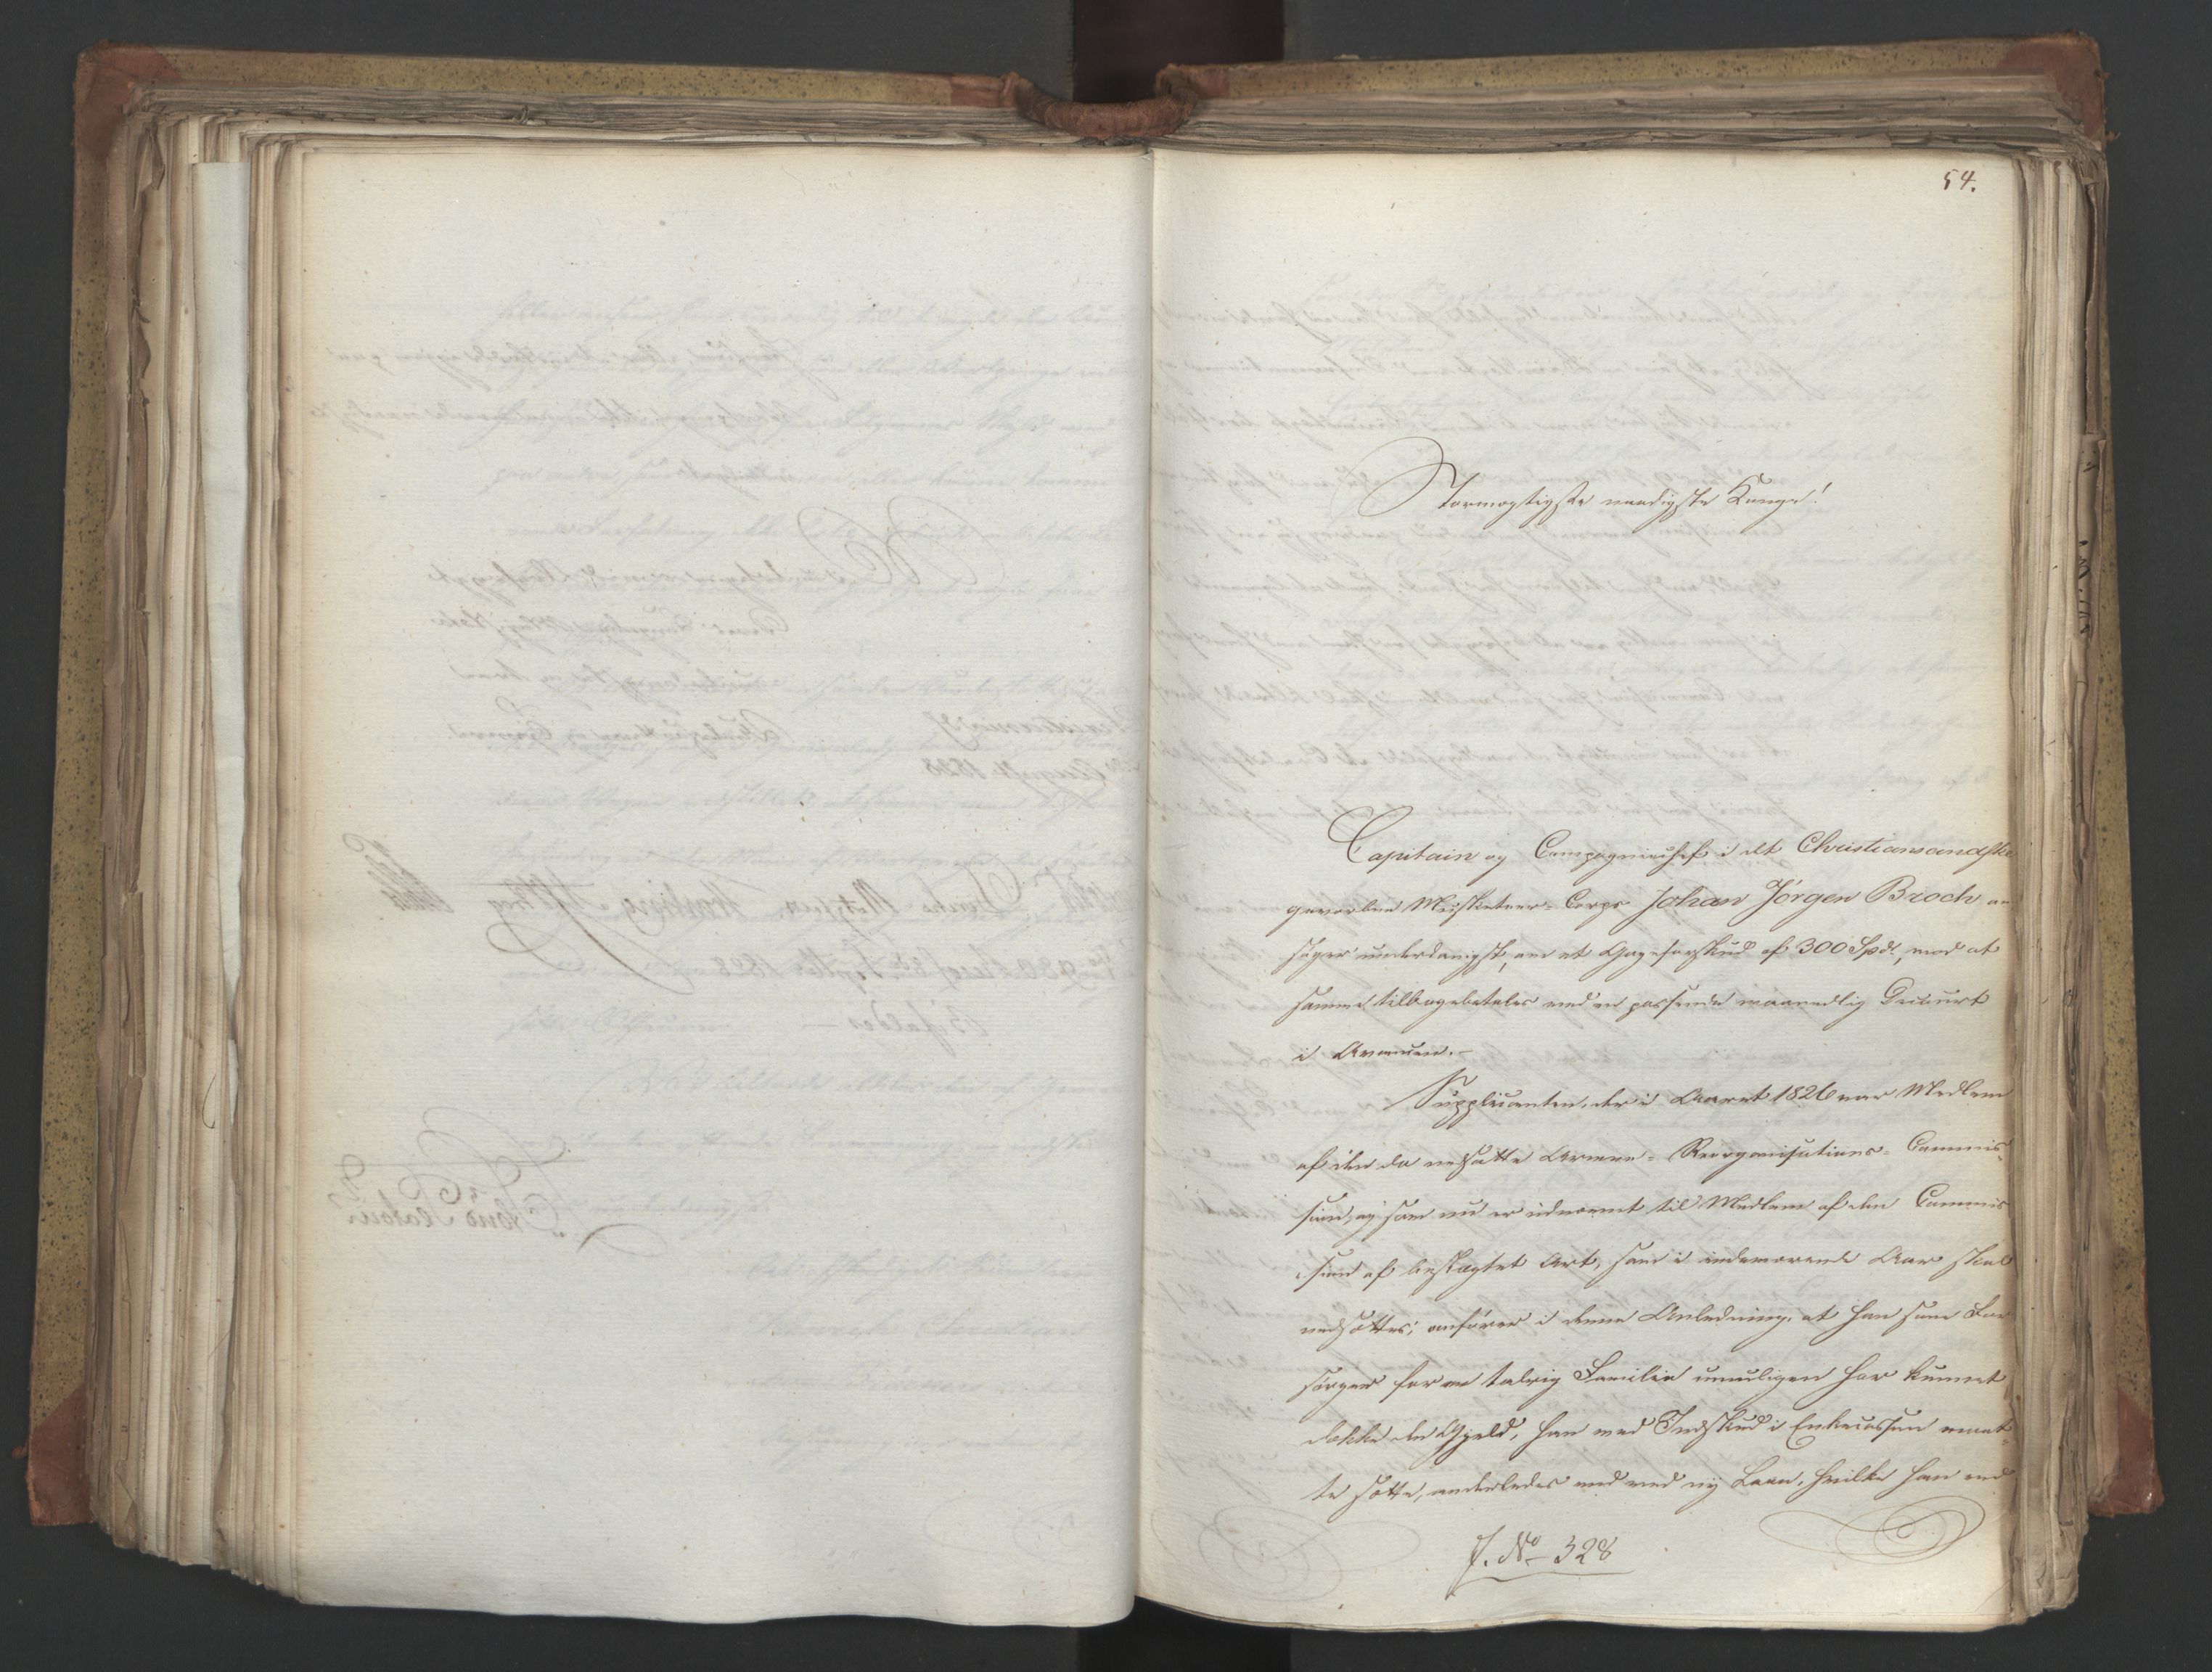 54.
Stormægtigste naadigste Konge!
Capitain og Compagniechef i det Christiansandske
gevorbne Musketeer-Corps Johan Jörgen Broch an
søger underdanigst, om et Gageforskud af 300 Spd., mod at
samme tilbagebetales med en passende maanedlig Decourt
i Avancen.-
Supplicanten, der i Aaret 1826 var Medlem
af den da nedsatte Armee-Reorganisations-Commis-
sion, og som nu er udnævnt til Medlem af den Commis
sion af beslægtet Art, som i indeværende Aar skal
nedsættes; anfører i denne Anledning, at han som For
sørger for en talrig Familie umuligen har kunnet
dække den Gjeld, han ved Indskud i Enkecassen maat-
te sætte, anderledes end ved ny Laan, hvilke han ved
J. No 328